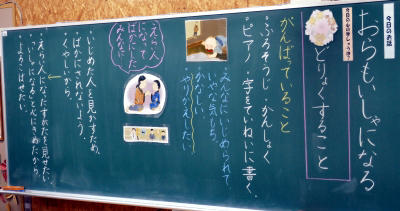 今日のお話
おらもいしゃになる
今日の心の夢しょう湯?
どりょくすること
がんばっていること
・ふろそうじ ・かんしょく
・ピアノ ・字をていねいに書く。
みんなにいじめられて、
いやな気もち。
かなしい。
やりかえしたい。
えらい人
になって
ばかにした
みんなに…
・いじめた人を見かすため。
・ばかにされないよう。
・くやしいから。
・えらい人になったすがたを見せたい。
・いしゃになる、と心にきめたから。
・よろこばせたい。